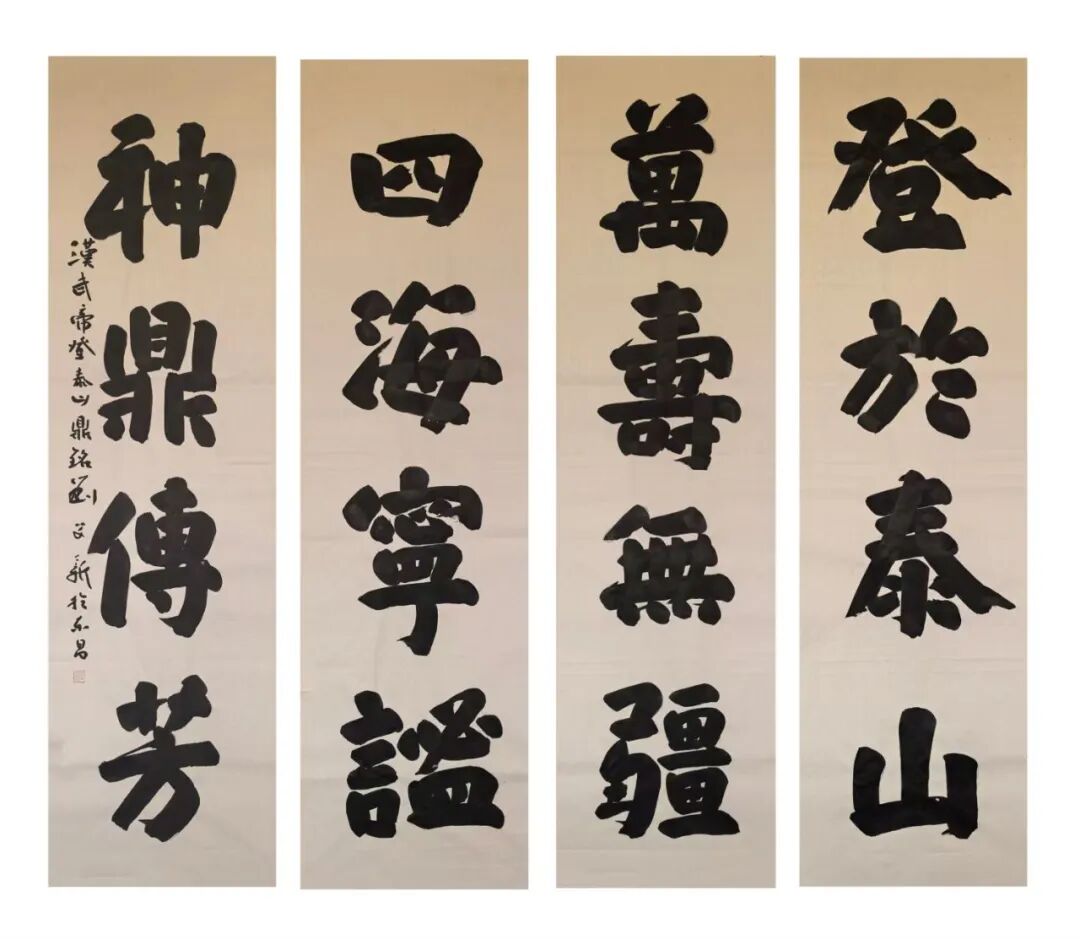 登於泰山
萬壽無疆
四海寧謐
神鼎傳芳
漢武帝登泰山鼎銘劉艾新於东昌